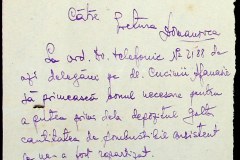 Către
Pretura
La ord. Dv. telefonic № 2188 de
azi delegăm pe dl. Cucinii Afanasie
să primească bonul necesar pentru
a putea primi dela depozitul Jalta
cantitatea de combustibil consistent
ce ne-a fost repartizat